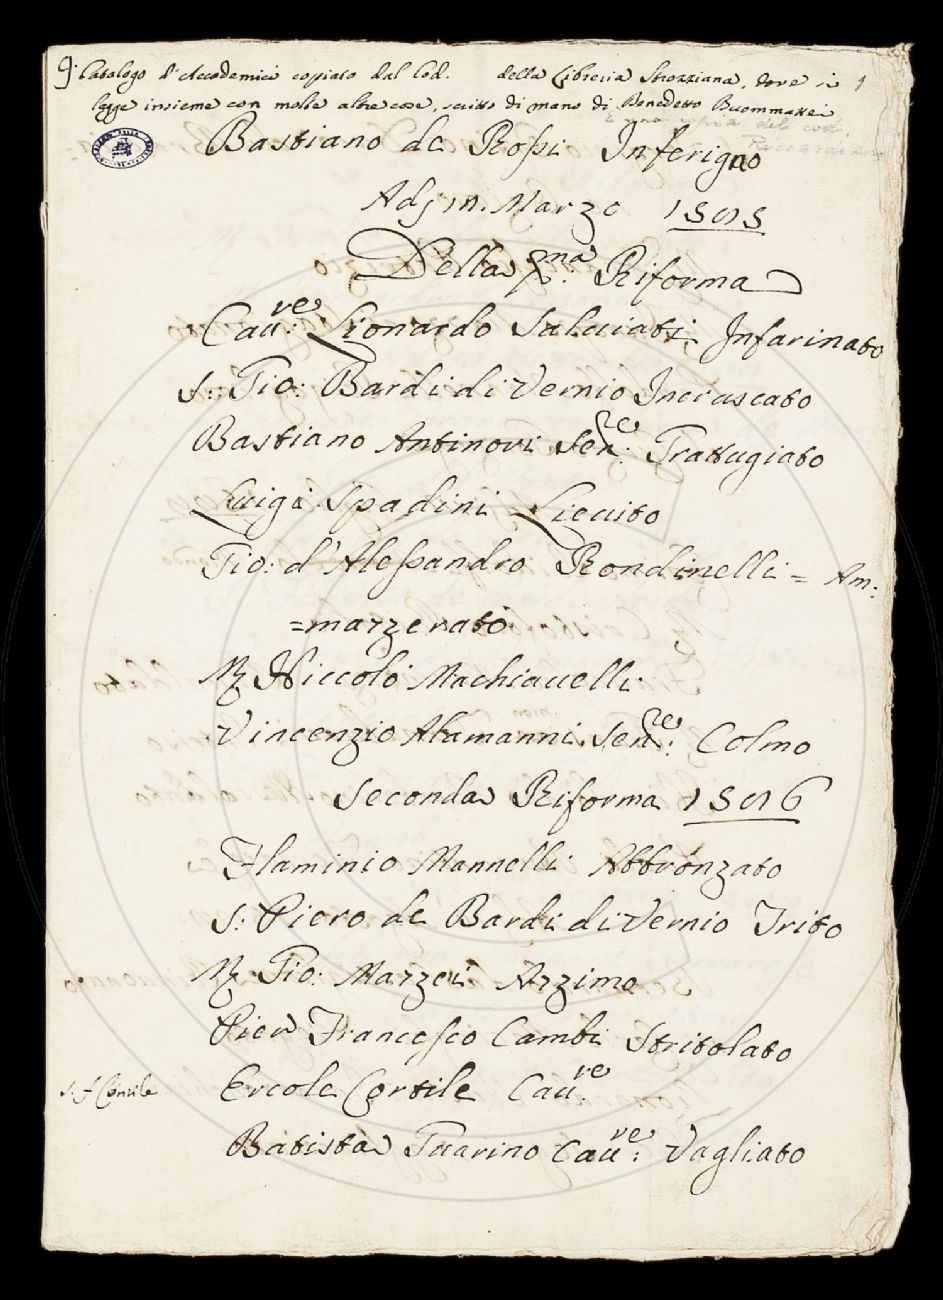 9. Catalogo d'Accademici copiato dal Cod. della Libreria Strozziana, dove si 1
legge insieme con molte altre cose, scritto di mano di Benedetto Buommattei
È una copia del cod.
Bastiano de Rossi Inferigno
Adj Marzo 1585
Della Pma. Riforma
Cau:re Lionardo Salviati Infarinato
S: Gio: Bardi di Vernio Incruscato
Bastiano Antinori Senre: Grattugiato
Luigi Spadini Lievito
Gio: d'Alessandro Rondinelli = Am:
=mazzerato
M Niccolò Machiavelli
Vincenzio Alamanni Senre: Colmo
Seconda Riforma 1586
Flaminio Mannelli Abbronzato
S: Piero de Bardi di Vernio Trito
M Gio: Mazzei Azzimo
Pier Francesco Cambi Stritolato
Ercole Cortile Caure:
s. f. Cortile
Batista Guarino Caure: Vagliato